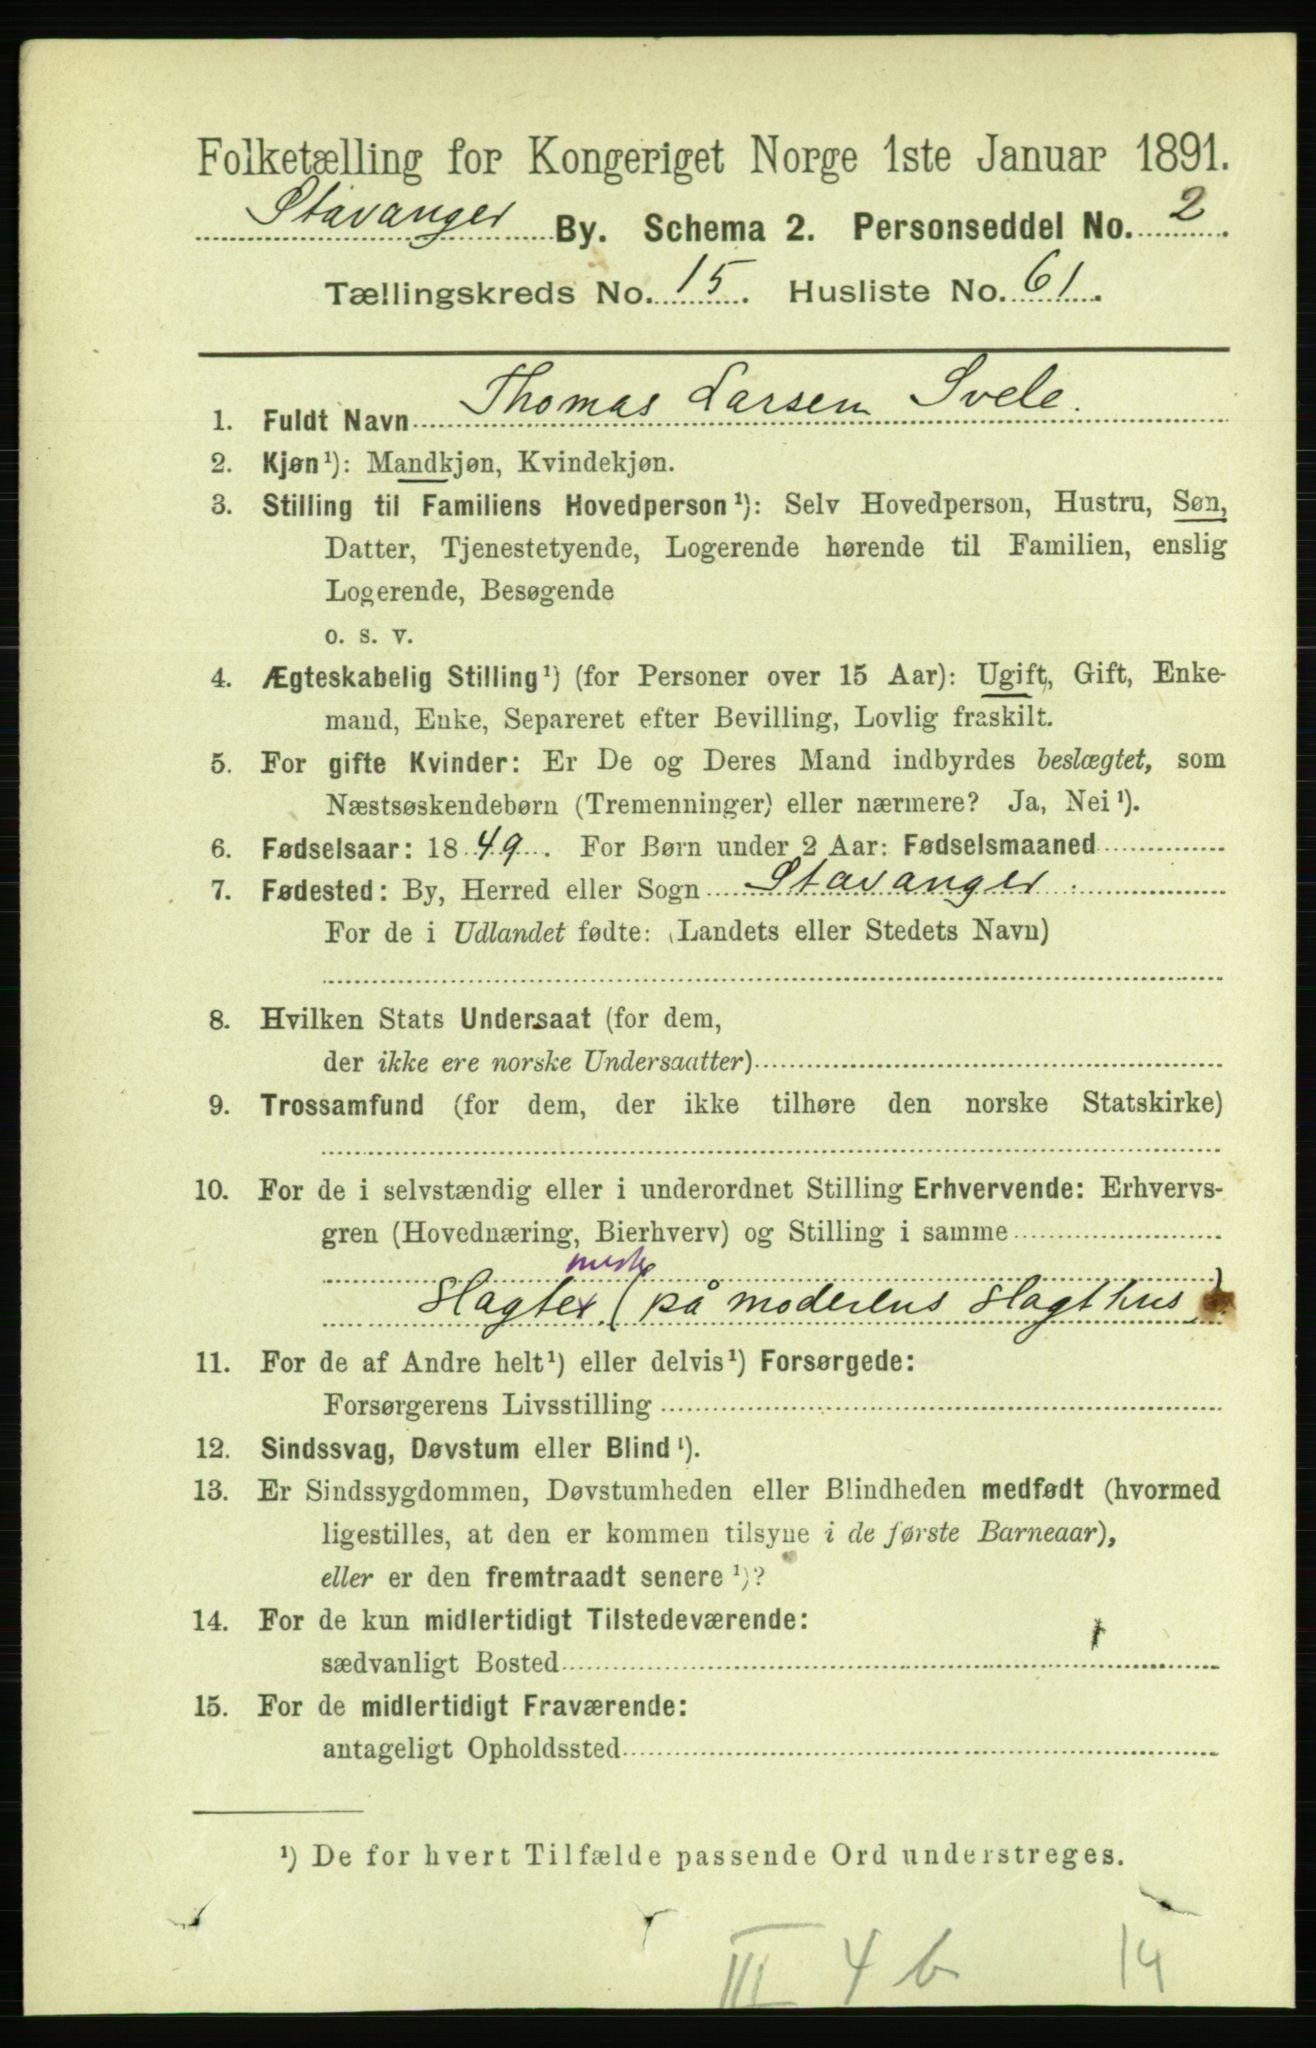 Folketælling for Kongeriget Norge 1ste Januar 1891.
Stavanger By. Schema 2. Personseddel No. 2.
Tællingskreds No. 15. Husliste No. 61.
1. Fuldt Navn Thomas Larsen Svele.
2. Kjøn¹): Mandkjøn, Kvindekjøn.
3. Stilling til Familiens Hovedperson¹): Selv Hovedperson, Hustru, Søn,
Datter, Tjenestetyende, Logerende hørende til Familien, enslig
Logerende, Besøgende
o. s. v.
4. Ægteskabelig Stilling¹) (for Personer over 15 Aar): Ugift, Gift, Enke-
mand, Enke, Separeret efter Bevilling, Lovlig fraskilt.
5. For gifte Kvinder: Er De og Deres Mand indbyrdes beslægtet, som
Næstsøskendebørn (Tremenninger) eller nærmere? Ja, Nei¹).
6. Fødselsaar: 1849. For Børn under 2 Aar: Fødselsmaaned
7. Fødested: By, Herred eller Sogn Stavanger.
For de i Udlandet fødte: (Landets eller Stedets Navn)
8. Hvilken Stats Undersaat (for dem,
der ikke ere norske Undersaatter)
9. Trossamfund (for dem, der ikke tilhøre den norske Statskirke)
10. For de i selvstændig eller i underordnet Stilling Erhvervende: Erhvervs-
gren (Hovednæring, Bierhverv) og Stilling i samme
Slagter (på moderens slagthus)
11. For de af Andre helt¹) eller delvis¹) Forsørgede:
Forsørgerens Livsstilling
12. Sindssvag, Døvstum eller Blind¹).
13. Er Sindssygdommen, Døvstumheden eller Blindheden medfødt (hvormed
ligestilles, at den er kommen tilsyne i de første Barneaar),
eller er den fremtraadt senere¹)?
14. For de kun midlertidigt Tilstedeværende:
sædvanligt Bosted
15. For de midlertidigt Fraværende:
antageligt Opholdssted
¹) De for hvert Tilfælde passende Ord understreges.
III 4 b 14